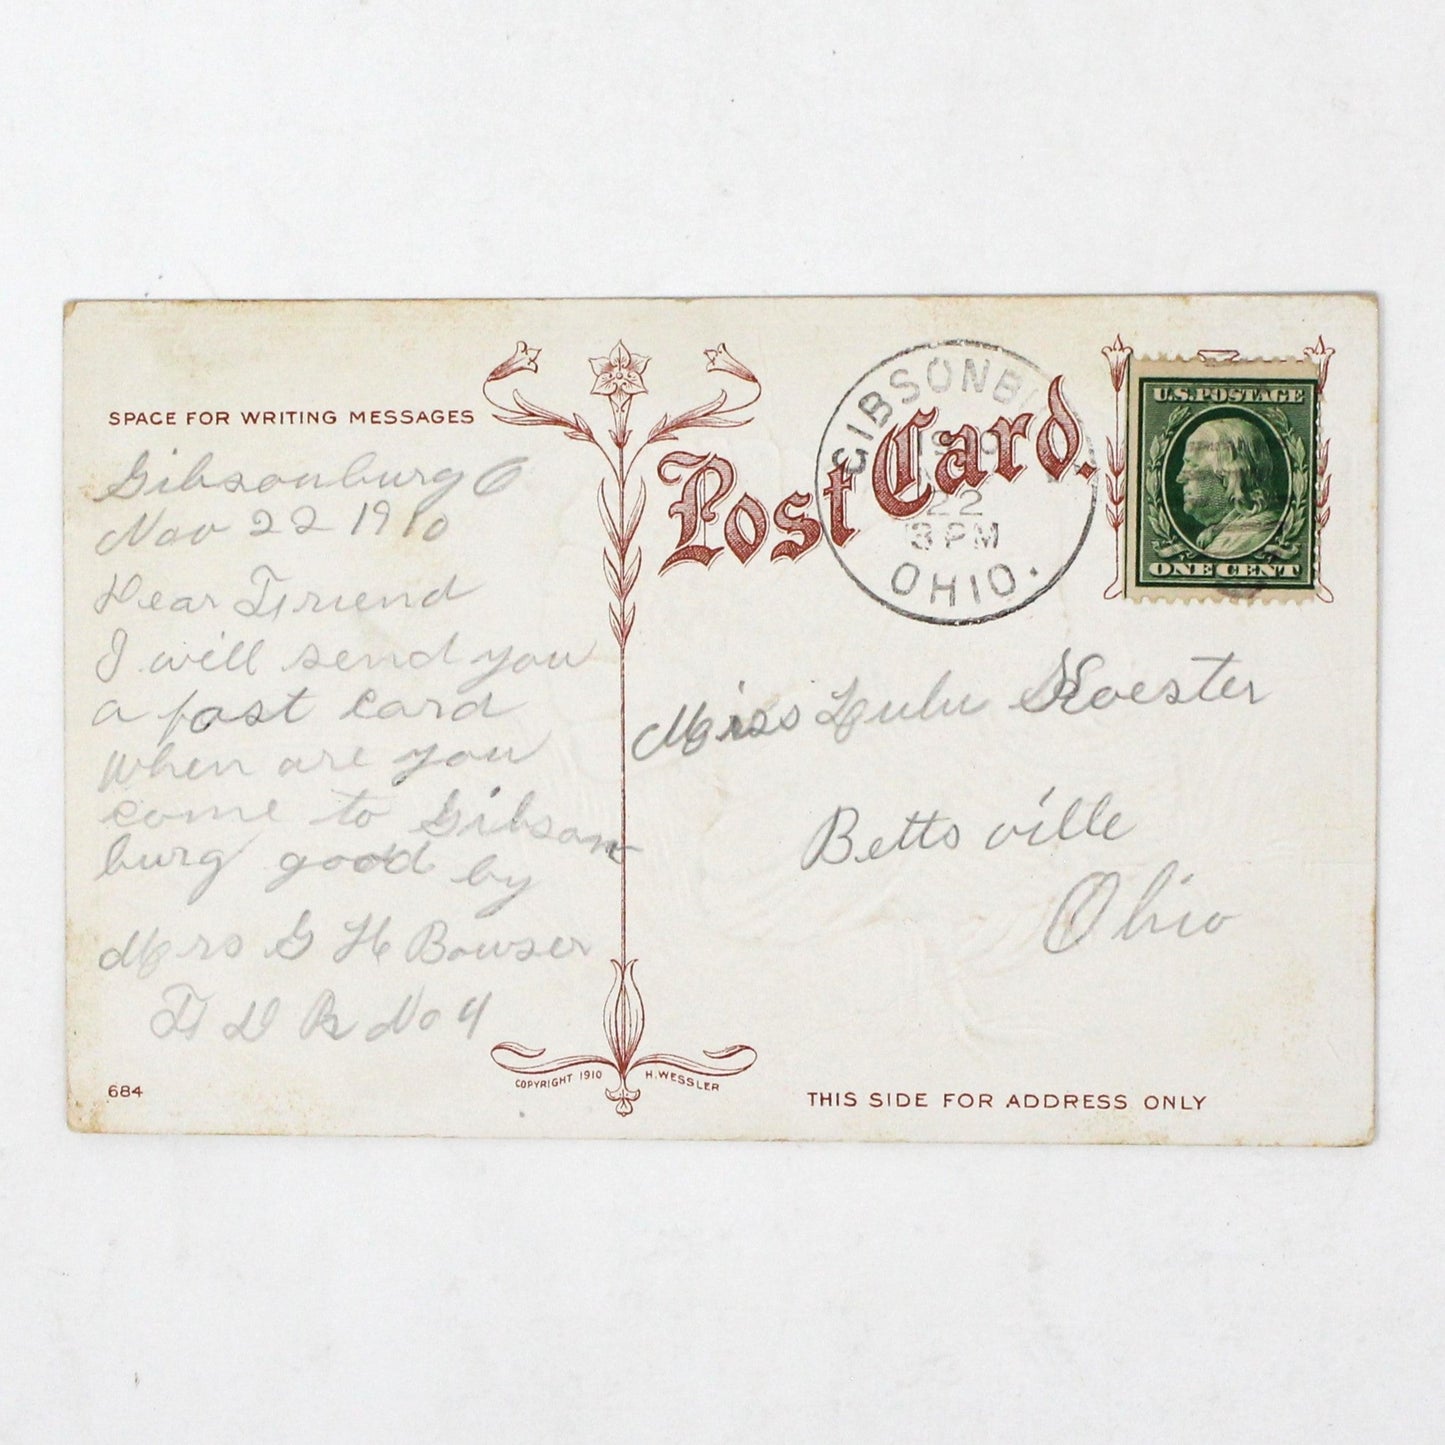 SPACE FOR WRITING MESSAGES
Gibsonburg O
Nov 22 1910
Dear Friend
I will send you
a post card
when are you
come to Gibson
burg good by
Mrs G H Bowser
F D R No 4
684
COPYRIGHT 1910 H. WESSLER
Post Card.
GIBSONBU
22
3 PM
OHIO.
U.S. POSTAGE
ONE CENT
Miss Lulu
Bettsville
Ohio
THIS SIDE FOR ADDRESS ONLY